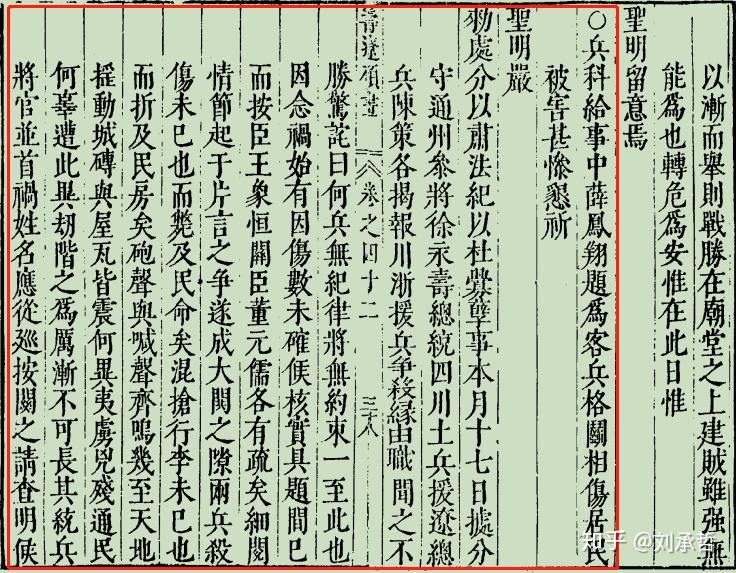 以漸而舉則戰勝在廟堂之上建賊雖强無
能爲也轉危爲安惟在此日惟
聖明留意焉
○兵科給事中薛鳳翔題爲客兵格鬭相傷居民
被害甚慘懇祈
聖明嚴
勑處分以肅法紀以杜釁孽事本月十七日據分
守通州叅將徐永壽總統四川土兵援遼總
兵陳策各揭報川浙援兵爭殺緣由職聞之不
籌遼碩畫 卷之四十二 三十八
勝驚詫曰何兵無紀律將無約束一至此也
因念禍始有因傷數未確俟核實具題間巳
而按臣王象恒關臣董元儒各有疏矣細閱
情節起于片言之爭遂成大鬨之隙兩兵殺
傷未巳也而斃及民命矣混搶行李未巳也
而折及民房矣砲聲與喊聲齊鳴幾至天地
摇動城磚與屋瓦皆震何異夷虜兇殘通民
何辜遭此異刧階之爲厲漸不可長其統兵
將官並首禍姓名應從廵按關之請查明俟
知乎 @刘承哲